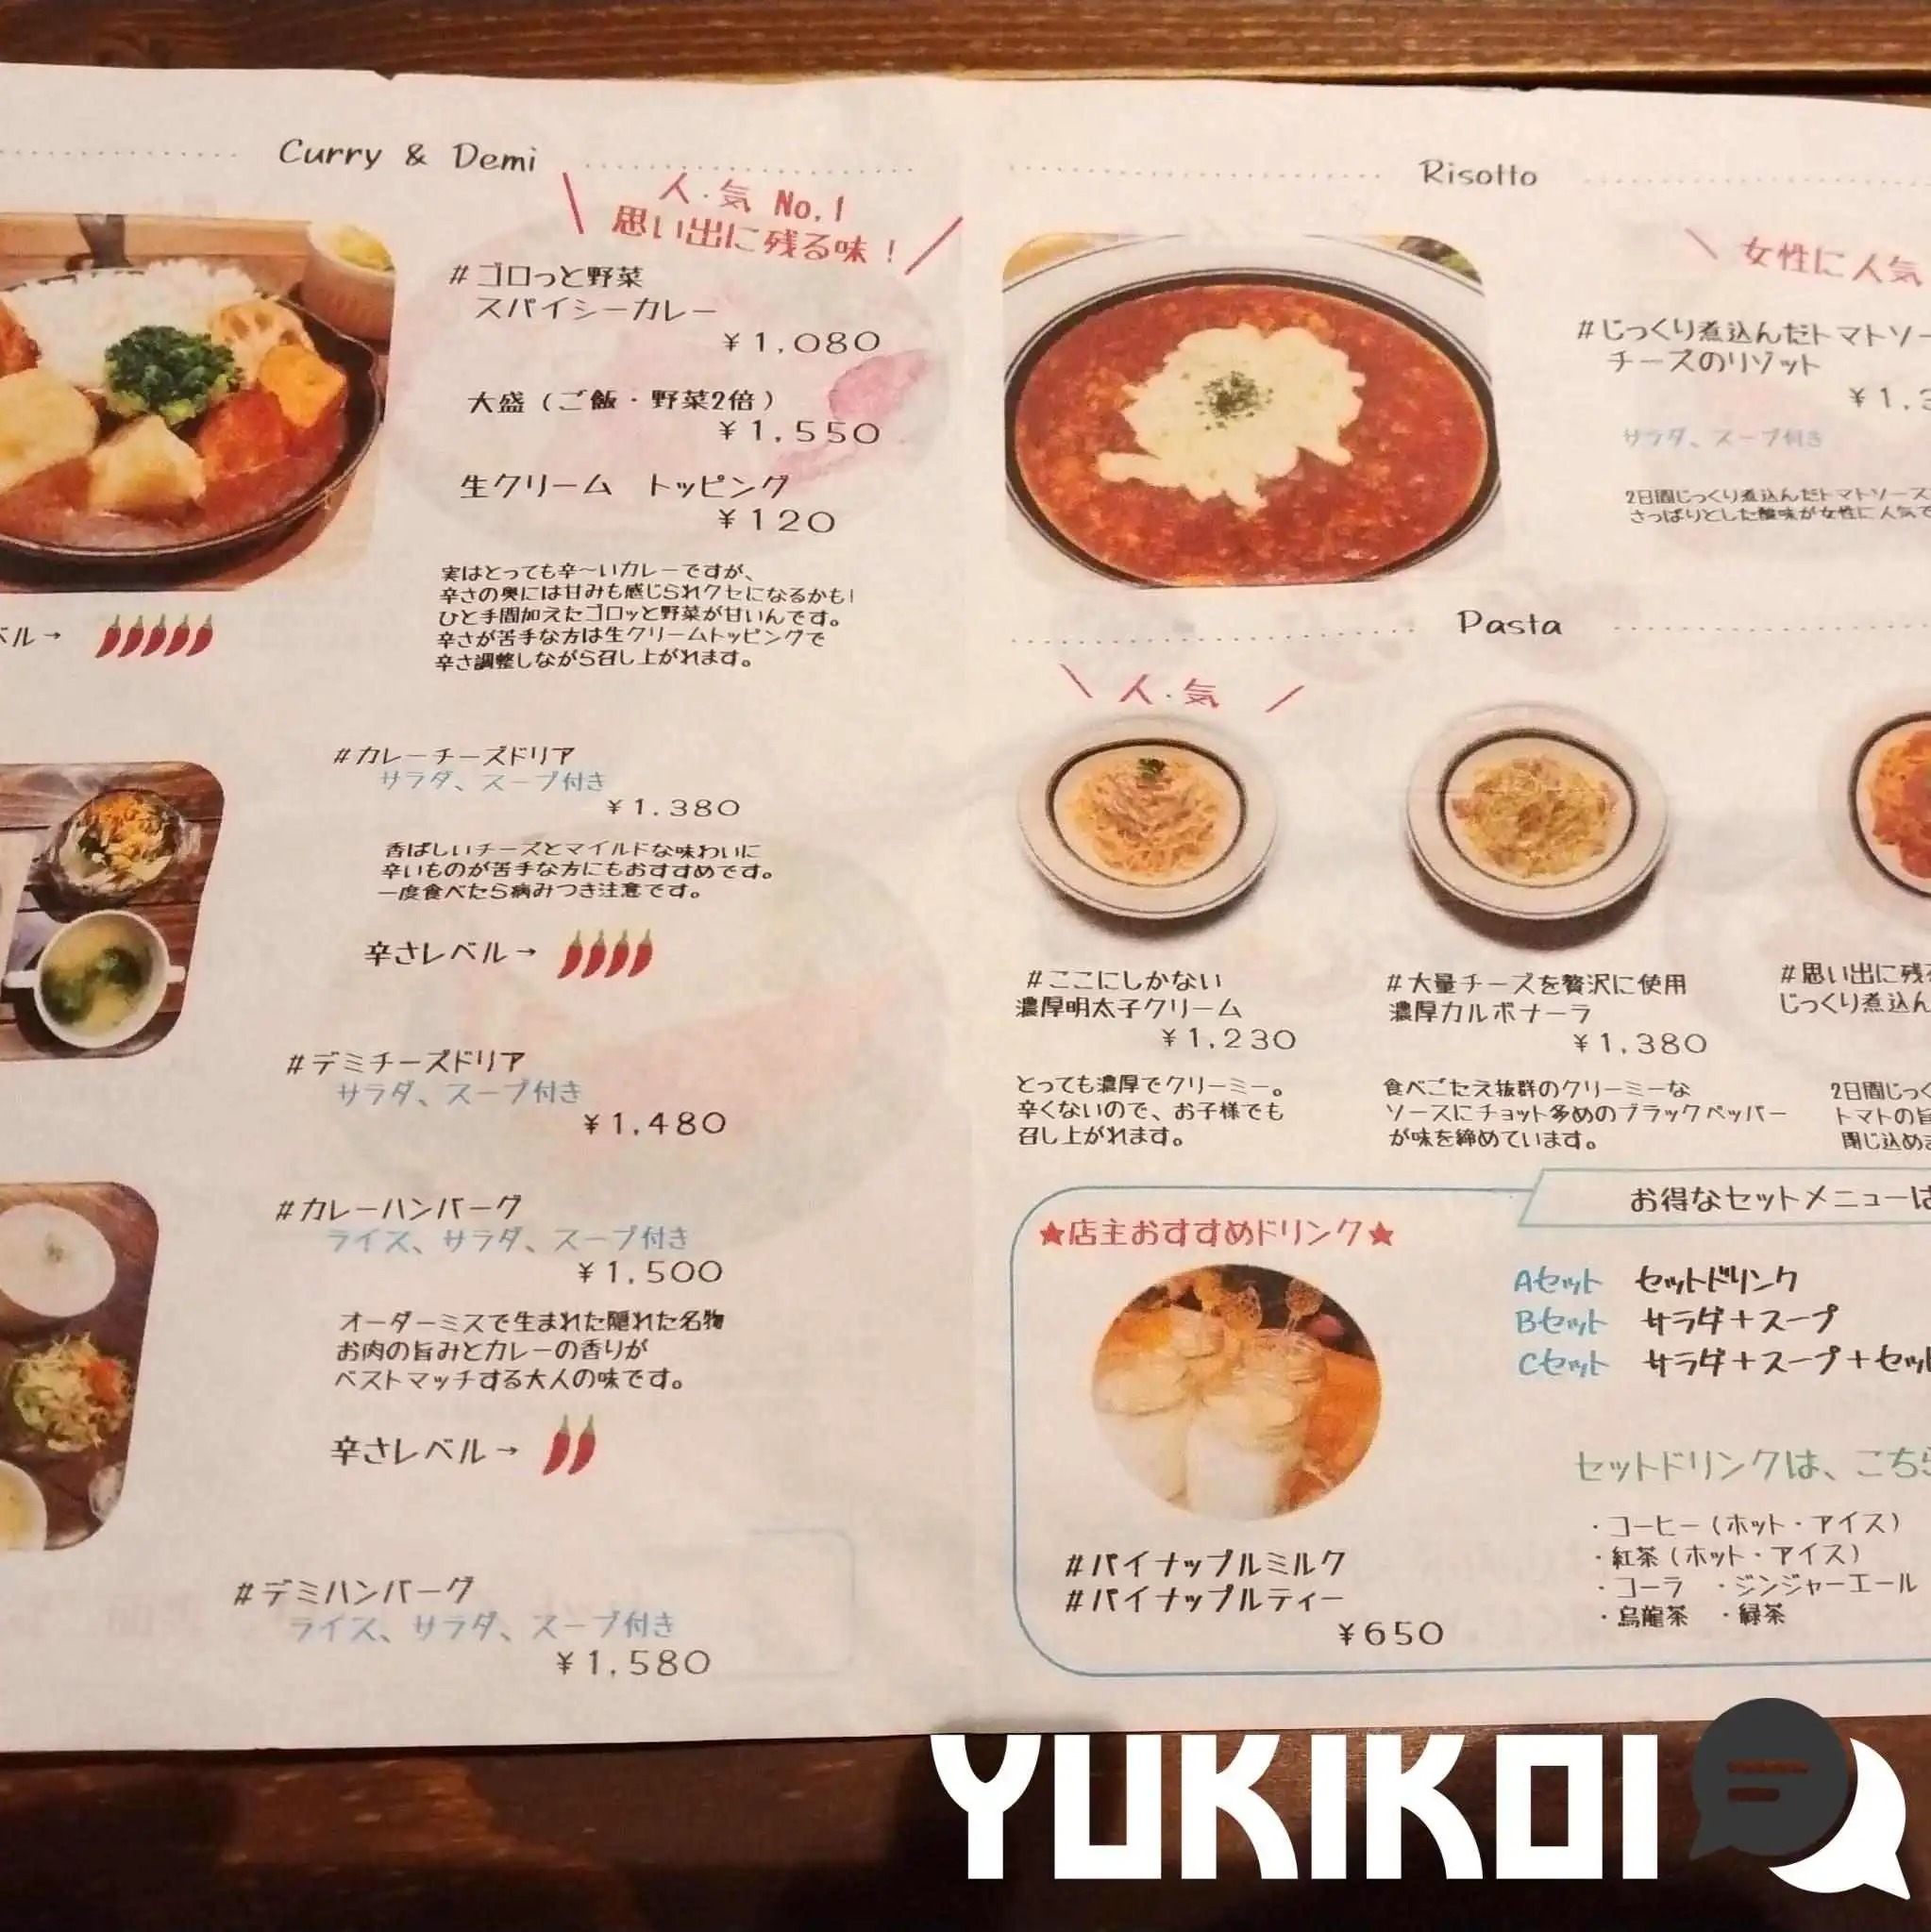 Curry & Demi
人・気 No.1
思い出に残る味！
#ゴロっと野菜
スパイシーカレー
¥1,080
大盛（ご飯・野菜2倍）
¥1,550
生クリーム トッピング
¥120
実はとっても辛〜いカレーですが、
辛さの奥には甘みも感じられクセになるかも!
ひと手間加えたゴロッと野菜が甘いんです。
辛さが苦手な方は生クリームトッピングで
辛さ調整しながら召し上がれます。
ベル→
#カレーチーズドリア
サラダ、スープ付き
¥1.380
香ばしいチーズとマイルドな味わいに
辛いものが苦手な方にもおすすめです。
一度食べたら病みつき注意です。
辛さレベル→
#デミチーズドリア
サラダ、スープ付き
¥1,480
#カレーハンバーグ
ライス、サラダ、スープ付き
¥1,500
オーダーミスで生まれた隠れた名物
お肉の旨みとカレーの香りが
ベストマッチする大人の味です。
辛さレベル→
#デミハンバーグ
ライス、サラダ、スープ付き
¥1,580
Risotto
女性に人気
#じっくり煮込んだトマトソー
チーズのリゾット
¥1,3
サラダ、スープ付き
2日間じっくり煮込んだトマトソース
さっぱりとした酸味が女性に人気で
Pasta
人・気
#ここにしかない
濃厚明太子クリーム
¥1,230
とっても濃厚でクリーミー。
辛くないので、お子様でも
召し上がれます。
#大量チーズを贅沢に使用
濃厚カルボナーラ
¥1,380
食べごたえ抜群のクリーミーな
ソースにチョット多めのブラックペッパー
が味を締めています。
#思い出に残
じっくり煮込ん
2日間じっく
トマトの旨
閉じ込めま
★店主おすすめドリンク★
#パイナップルミルク
#パイナップルティー
¥650
お得なセットメニューは
Aセット セットドリンク
Bセット サラダ+スープ
Cセット サラダ+スープ+セッ
セットドリンクは、こちら
・コーヒー（ホット・アイス）
・紅茶（ホット・アイス）
・コーラ ・ジンジャーエール
・烏龍茶 ・緑茶
YUKIKOI